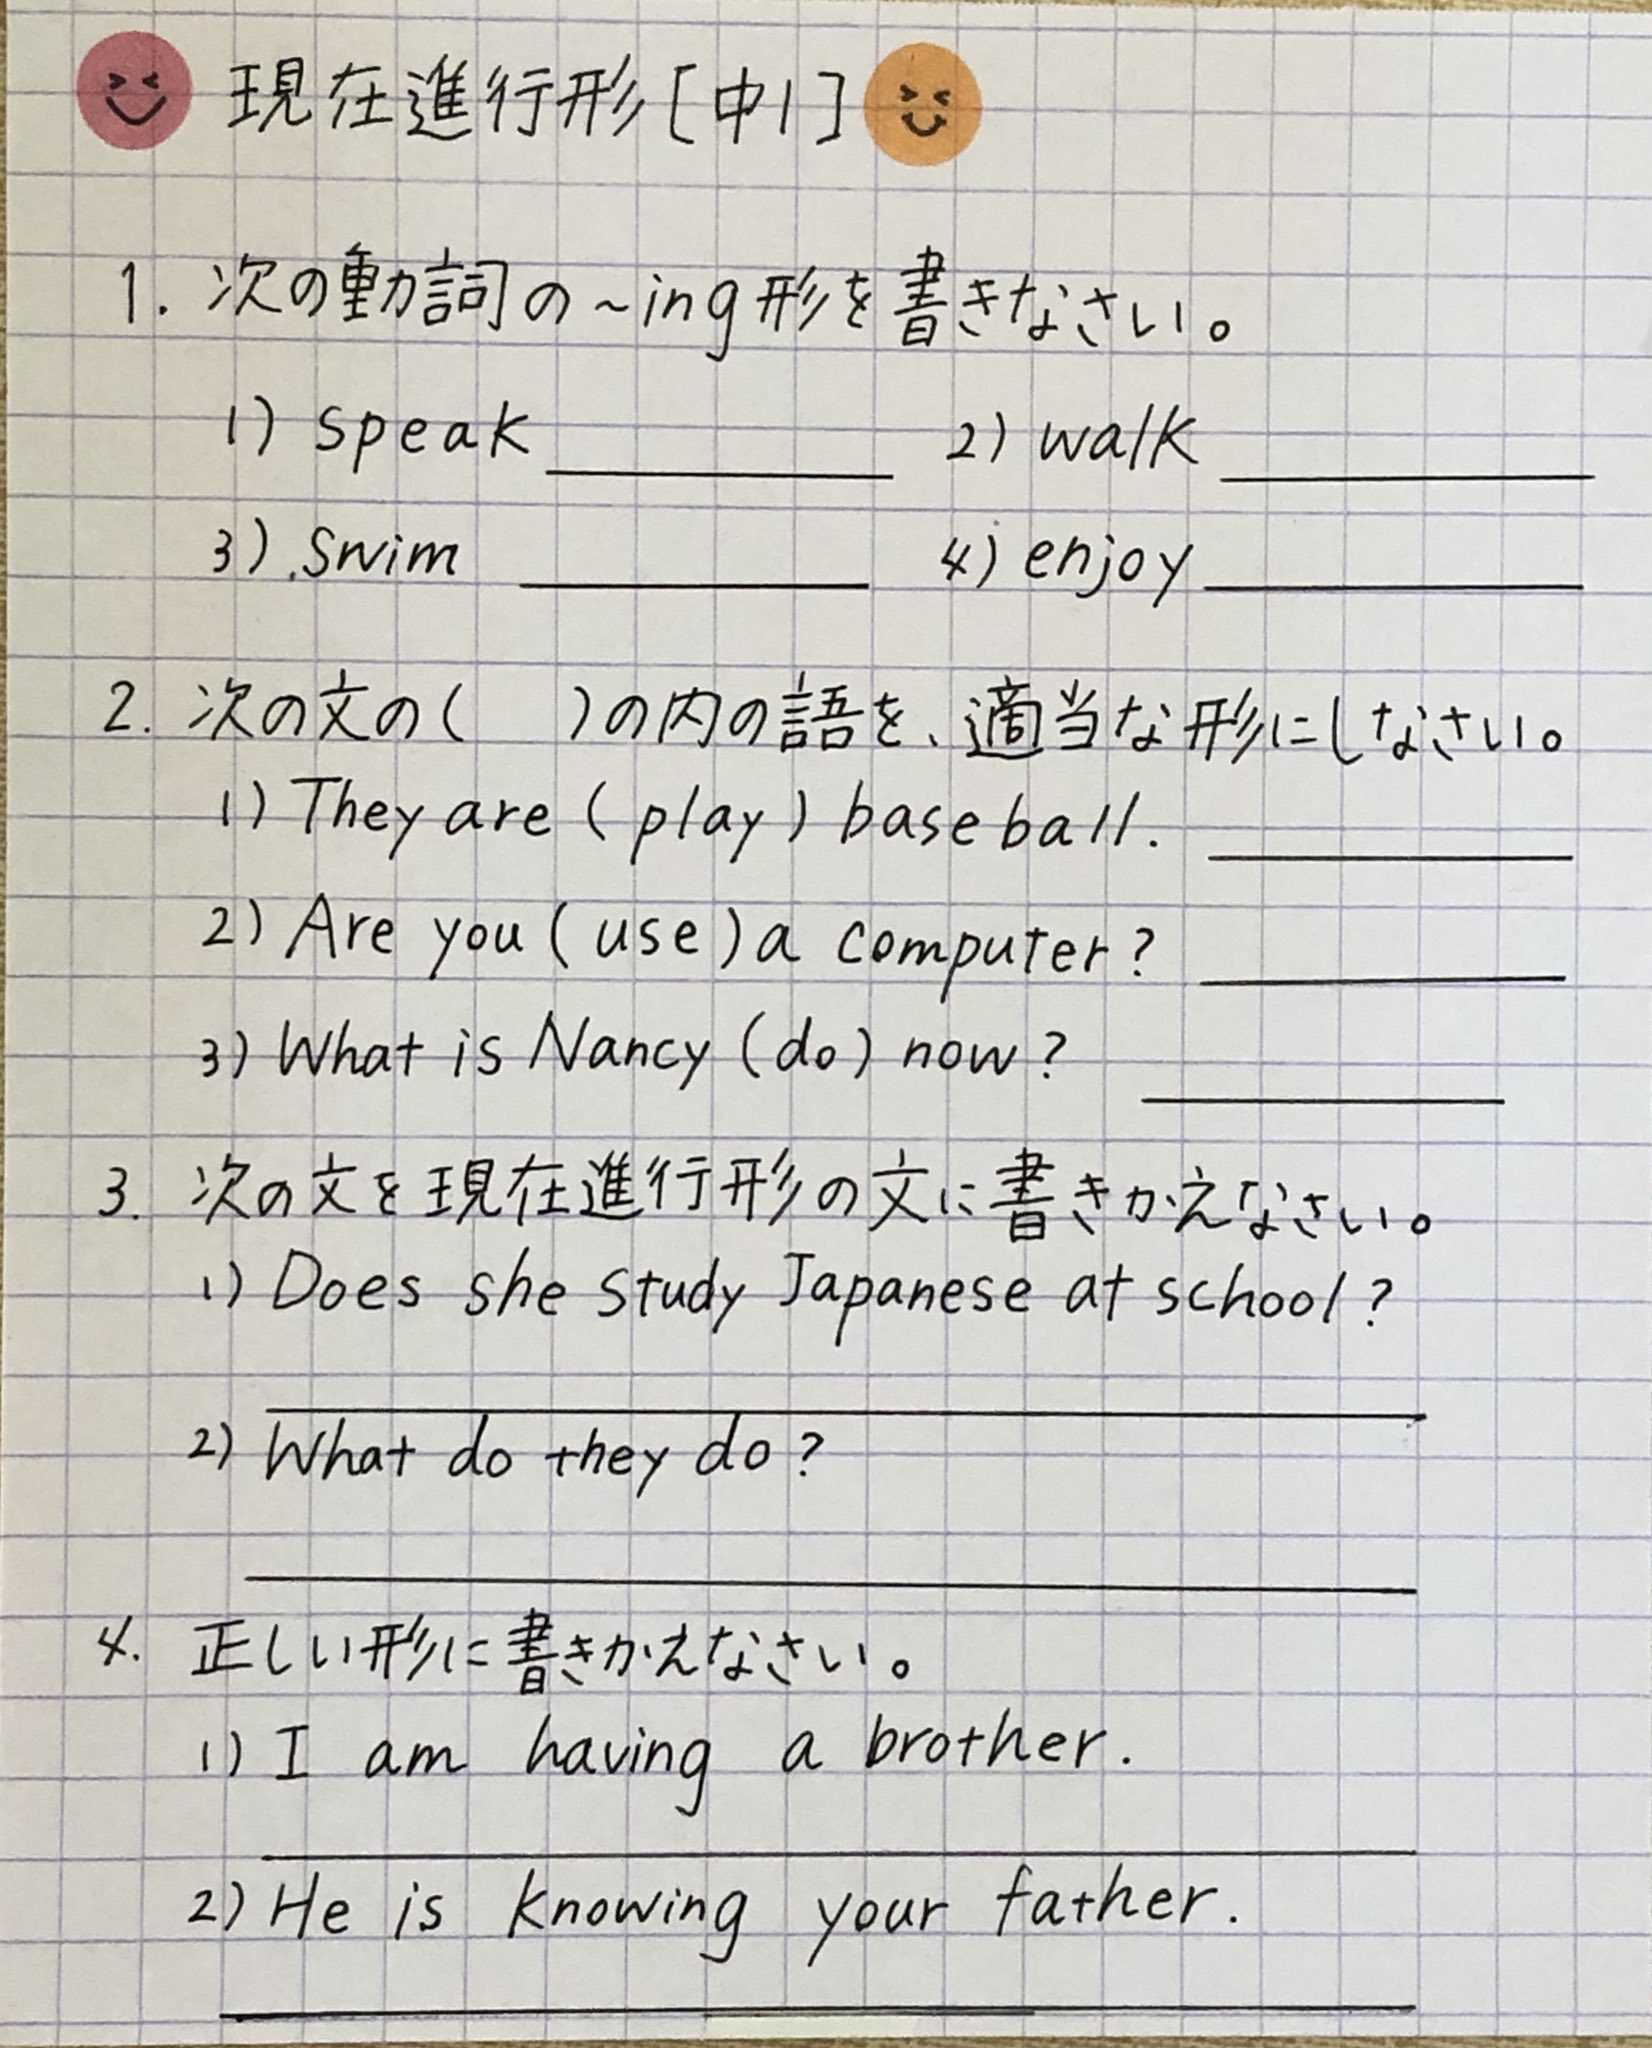 現在進行形[中1]
1. 次の動詞の~ing形を書きなさい。
1) speak 2) walk
3) swim 4) enjoy
2. 次の文の( )の内の語を、適当な形にしなさい。
1) They are (play) baseball.
2) Are you (use) a computer?
3) What is Nancy (do) now?
3. 次の文を現在進行形の文に書きかえなさい。
1) Does she study Japanese at school?
2) What do they do?
4. 正しい形に書きかえなさい。
1) I am having a brother.
2) He is knowing your father.